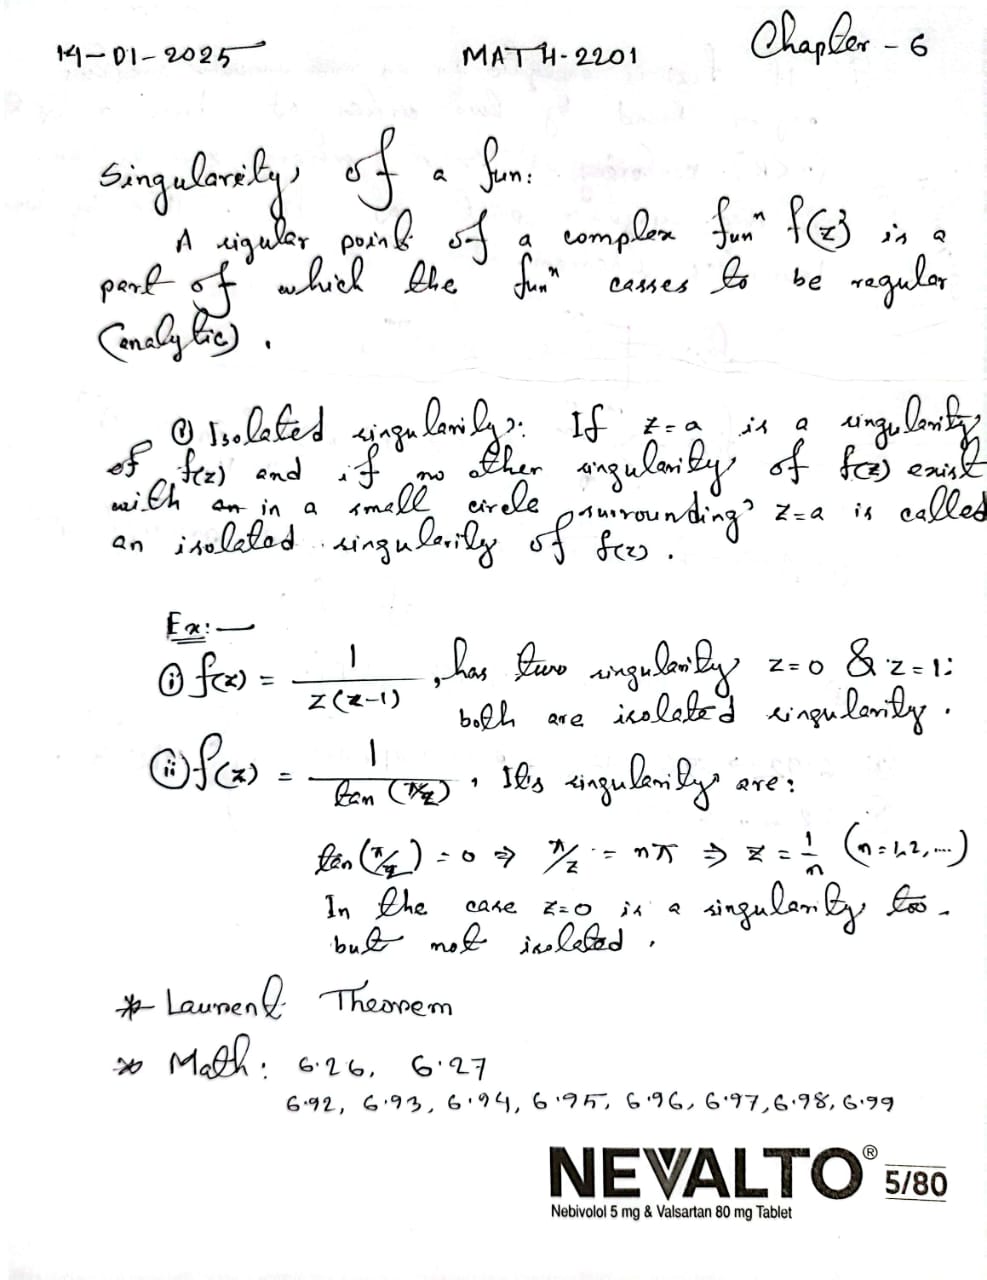 14-01-2025 MATH-2201 Chapter - 6
Singularity of a fun:
A sigular point of a complex funⁿ f(z) is a
part of which the funⁿ casses to be regular
(analytic).
① Isolated singularity: If z=a is a singularity
of f(z) and if no other singularity of f(z) exist
with an in a small circle surrounding z=a is called
an isolated singularity of f(z).
Ex:—
ⓘ f(z) = 1/z(z-1), has two singularity z=0 & z=1:
both are isolated singularity.
ⓘⓘ f(z) = 1/tan(π/z), It's singularity are:
tan(π/z) = 0 ⇒ π/z = nπ ⇒ z = 1/n (n=1,2,....)
In the case z=0 is a singularity too.
but not isolated.
* Laurent Theorem
* Math: 6.26, 6.27
6.92, 6.93, 6.94, 6.95, 6.96, 6.97, 6.98, 6.99
NEVALTO® 5/80
Nebivolol 5 mg & Valsartan 80 mg Tablet